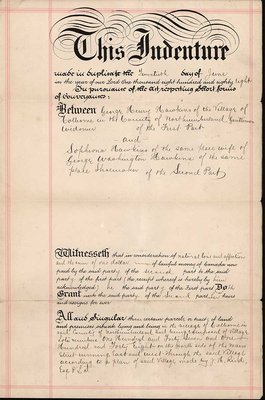 This Indenture
made in duplicate the day of June
in the year of our Lord one thousand eight hundred and eighty eight
In pursuance of the Act respecting Short forms
of Conveyances:
Between George Henry Hawkins of the Village of
Colborne in the County of Northumberland Gentleman
Widower of the First Part
and
Sophrona Hawkins of the same place wife of
George Washington Hawkins of the same
place Shoemaker of the Second Part
Witnesseth that in consideration of natural love and affection
and the sum of one dollar of lawful money of Canada now
paid by the said party of the second part to the said
party of the first part (the receipt whereof is hereby by him
acknowledged) he the said party of the First Part Doth
Grant unto the said party of the second part her heirs
and assigns for ever
All and Singular those certain parcels or tracts of land
and premises situate lying and being in the village of Colborne in
said county of Northumberland and being composed of village
Lots numbers One Hundred and Forty Seven and One
Hundred and Forty Eight on the North side of the Main
Street running East and West through the said Village
according to a plan of said Village made by
Esq P.L.S.